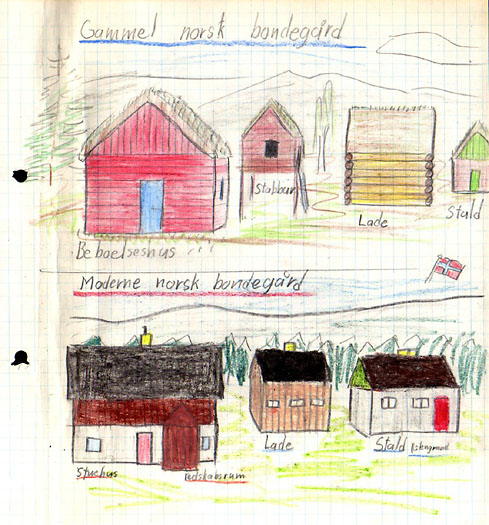 Gammel norsk bondegård
Stabbur
Lade
Stald
Beboelseshus
Moderne norsk bondegård
Lade
Stald
Stuehus
redskabsrum